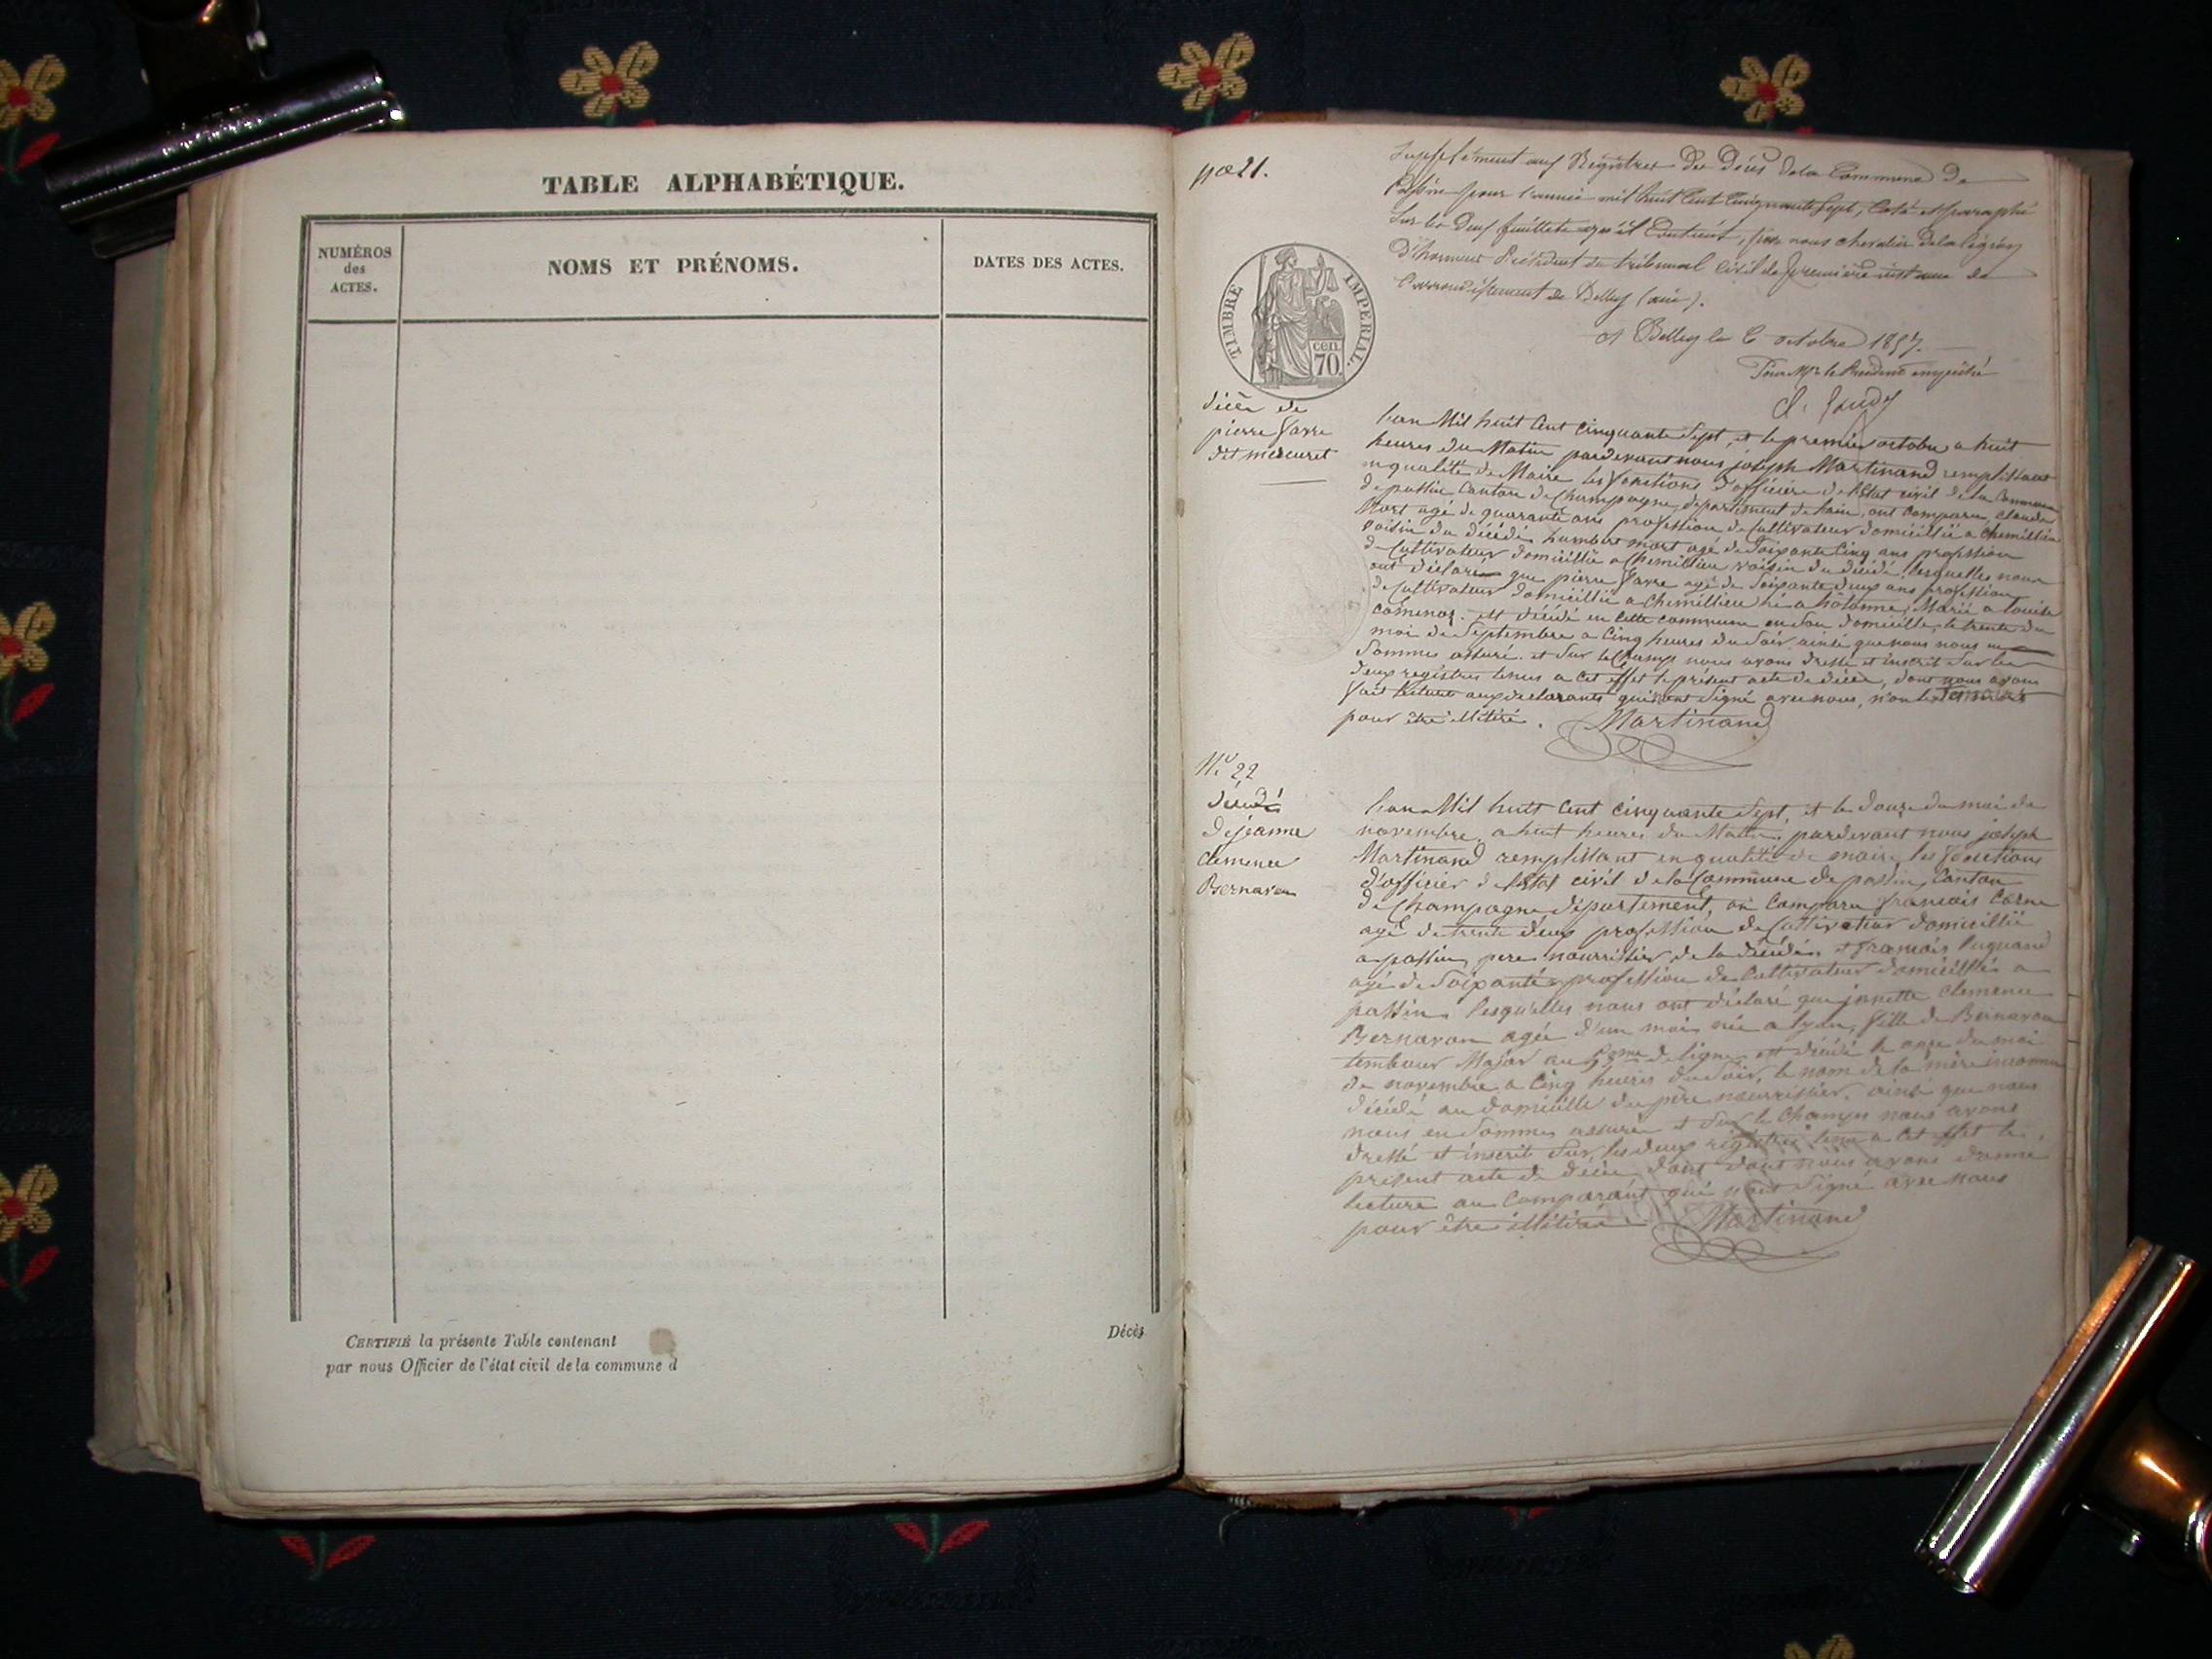 TABLE ALPHABÉTIQUE.
NUMÉROS
des
ACTES.
NOMS ET PRÉNOMS.
DATES DES ACTES.
CERTIFIÉ la présente Table contenant
par nous Officier de l'état civil de la commune d
Décès
21.
Supplément aux Régistres des Décès dela Commune de
pour l'année mil huit Cent Cinquante Sept, Coté et paraphé
Sur les Deux feuillets qu'il Contient, par nous chevalier dela légion
D'honneur Président du tribunal Civil de première instance de
l'arrondissement de Belley (ain).
A Belley le 6 octobre 1857.
Pour Mr. le Président empêché
TIMBRE IMPERIAL.
cen.
70.
décès de
pierre favre
dit mercuret
L'an Mil huit Cent cinquante Sept, et le premier octobre a huit
heures du Matin pardevant nous joseph Martinand remplissant
en qualité de Maire les fonctions d'officier de l'état civil de la Commune
de passin Canton de Champagne, département de l'ain, ont comparu, claude
Mort agé de quarante ans profession de Cultivateur domicillié a chemillieu
voisin du décédé, humbert mort agé de Soixante Cinq ans profession
de Cultivateur domicillié a Chemillieu voisin du décédé, lesquelles nous
ont déclaré que pierre favre agé de Soixante deux ans profession
de Cultivateur domicillié a Chemillieu né a hotonne, Marié a louise
est décédé en cette commune en Son domicille, le trente du
moi de Septembre a Cinq heures du Soir ainsi que nous nous en
Sommes assuré. et Sur le Champ nous avons dressé et inscrit Sur les
deux registres tenus a Cet effet le présent acte de décès, dont nous avons
fait lecture aux declarants qui ont Signé avec nous, non les
pour être illitéré. Martinand
No. 22
décédé
de jeanne
clemence
Bernavon
L'an Mil huit Cent Cinquante Sept, et le douze du moi de
novembre, a huit heures du Matin, pardevant nous joseph
Martinand remplissant en qualité de maire les fonctions
d'officier de l'état civil de la Commune de passin, Canton
de Champagne département, on Comparu francois
agé de trente deux profession de Cultivateur domicillié
a passin, pere nourrissier de la décédée et francois
agé de Soixante profession de Cultivateur domicilliés a
passin, lesquelles nous ont déclaré que jeanette clemence
Bernavon agée d'un moi née a lyon, fille de Bernavon
tembour Major au de ligne est décédé le onze du moi
de novembre a Cinq heures du Soir, le nom de la mère inconnu
décédé au domicille du pere nourrissier. ainsi que nous
nous en Sommes assuré et Sur le Champs nous avons
dressé et inscrit Sur les deux registres tenu a Cet effet le
présent acte de décès, dont dont nous avons donné
lecture au Comparant qui n'ont Signé avec nous
pour être illitéré. Martinand